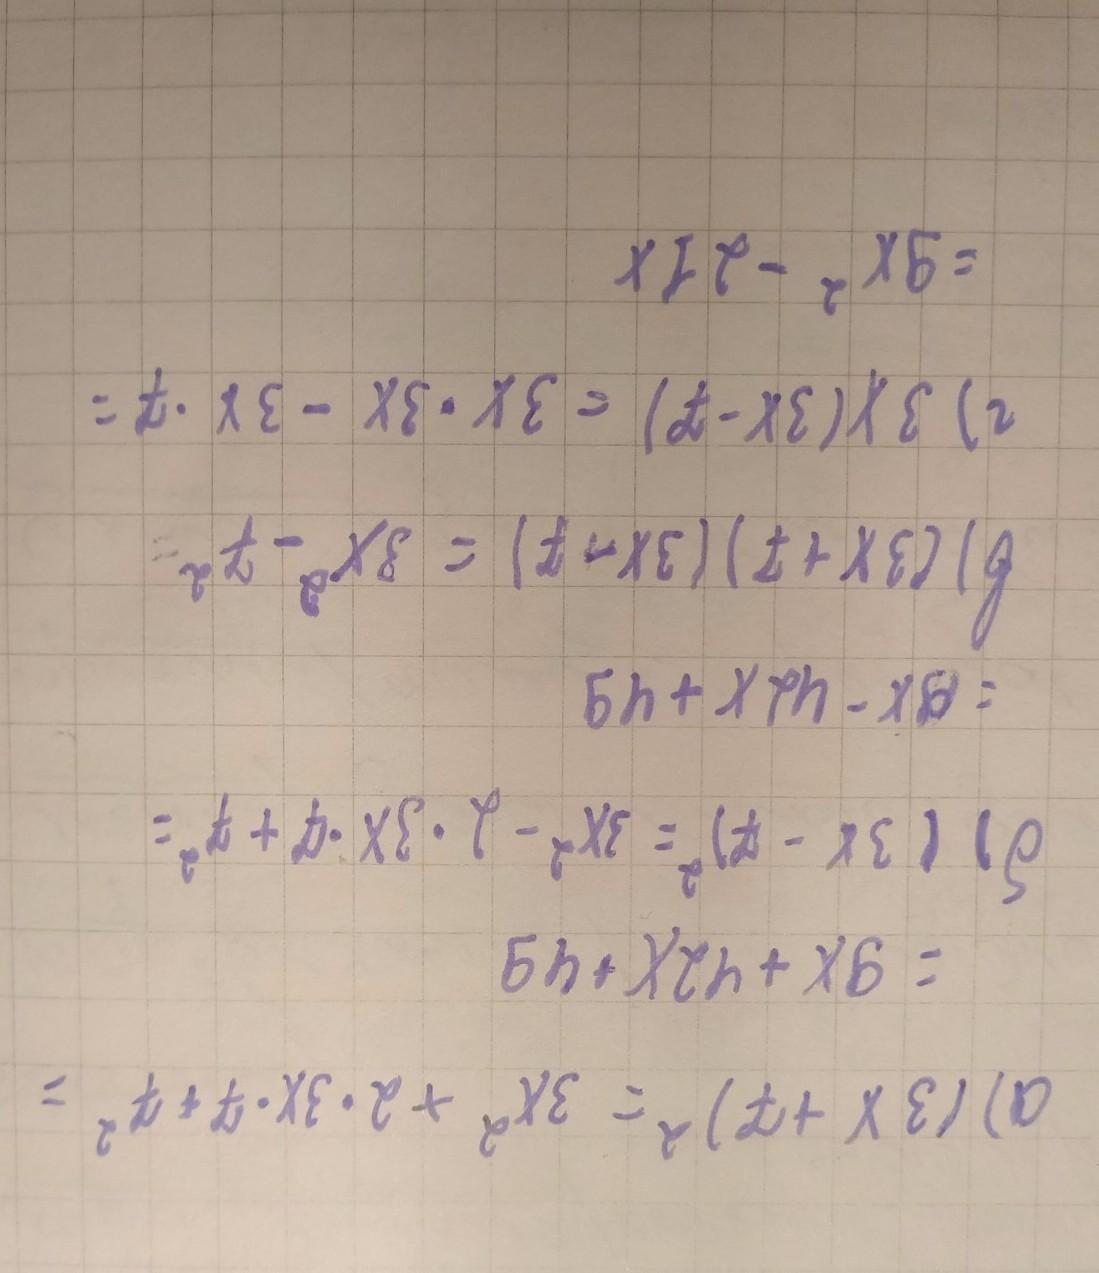 а) (3x + 7)² = 3x² + 2·3x·7 + 7² =
= 9x + 42x + 49
б) (3x - 7)² = 3x² - 2·3x·7 + 7² =
= 9x - 42x + 49
в) (3x + 7)(3x - 7) = 3x² - 7² =
г) 3x(3x - 7) = 3x·3x - 3x·7 =
= 9x² - 21x